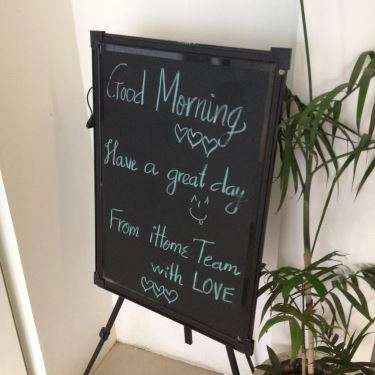 Good Morning
Have a great day
From iHome Team
with LOVE